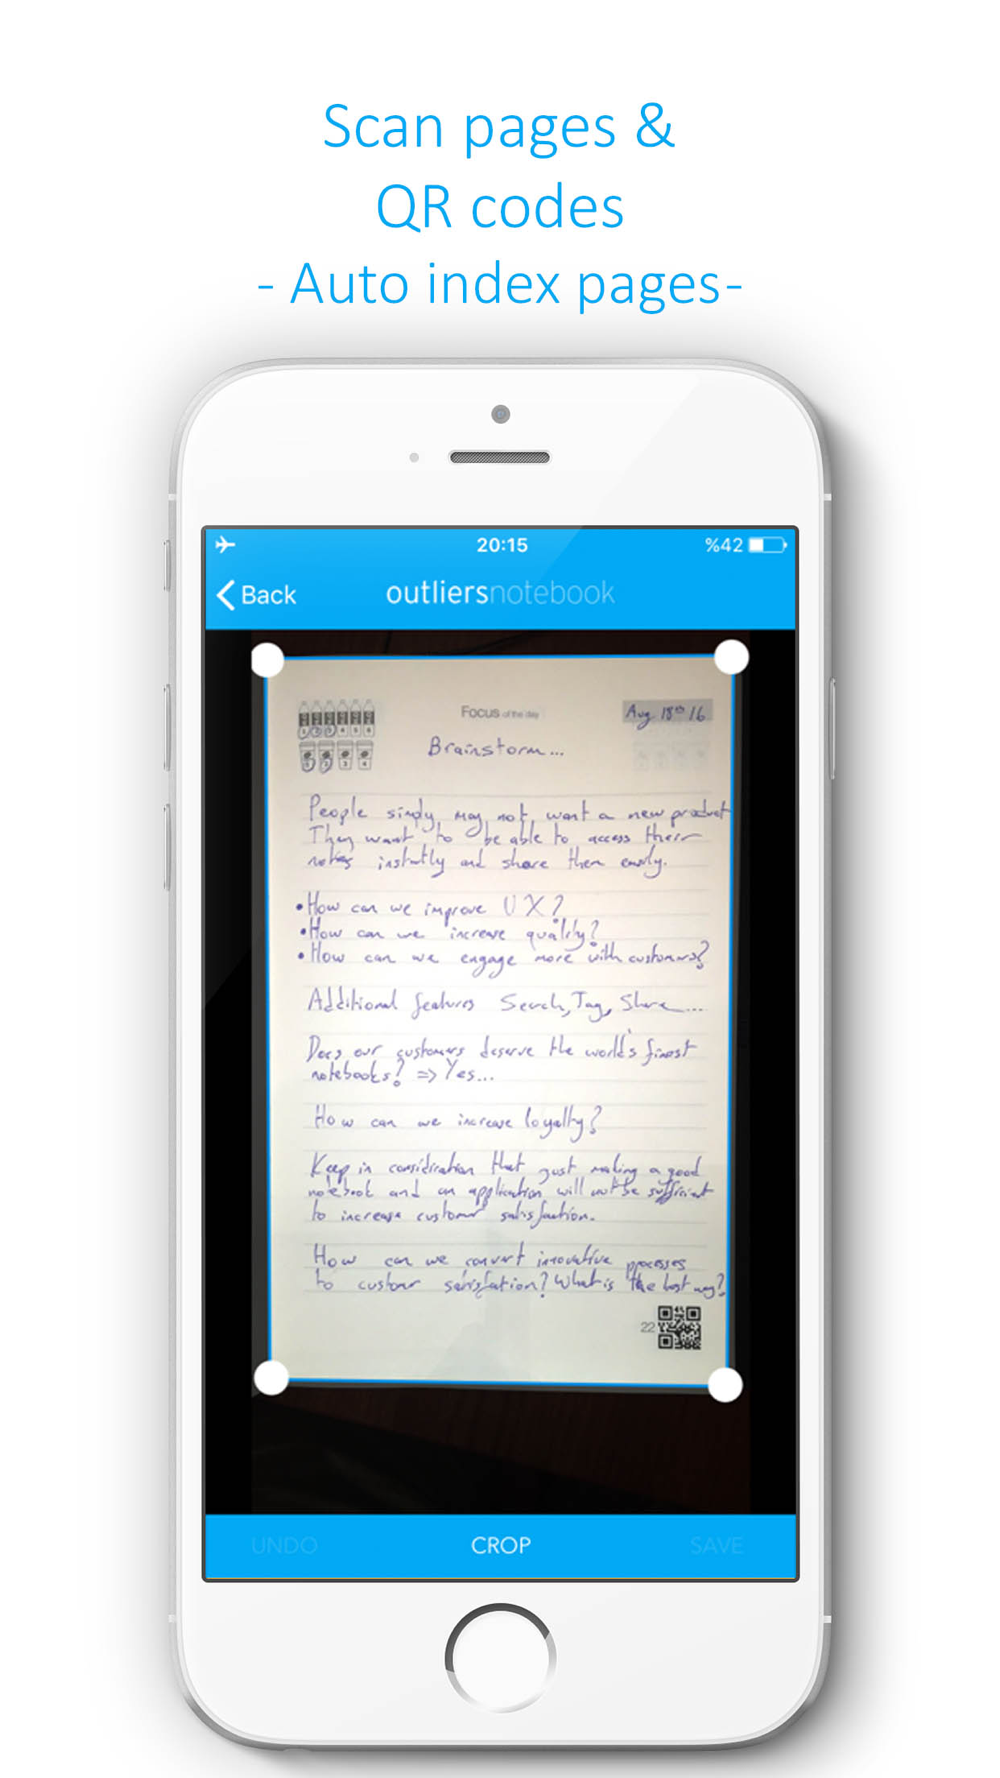 Scan pages &
QR codes
- Auto index pages-
20:15
%42
Back
outliersnotebook
Focus of the day
Aug 18th 16
1 2 3 4 5 6
1 2 3 4
Brainstorm...
People simply may not want a new product
They want to be able to access their
notes instantly and share them easily.
•How can we improve UX?
•How can we increase quality?
•How can we engage more with customers?
Additional features Search, Tag, Share...
Does our customers deserve the world's finest
notebooks? => Yes...
How can we increase loyalty?
Keep in consideration that just making a good
notebook and an application will not be sufficient
to increase customer satisfaction.
How can we convert innovative processes
to customer satisfaction? What is the best way?
22
UNDO
CROP
SAVE